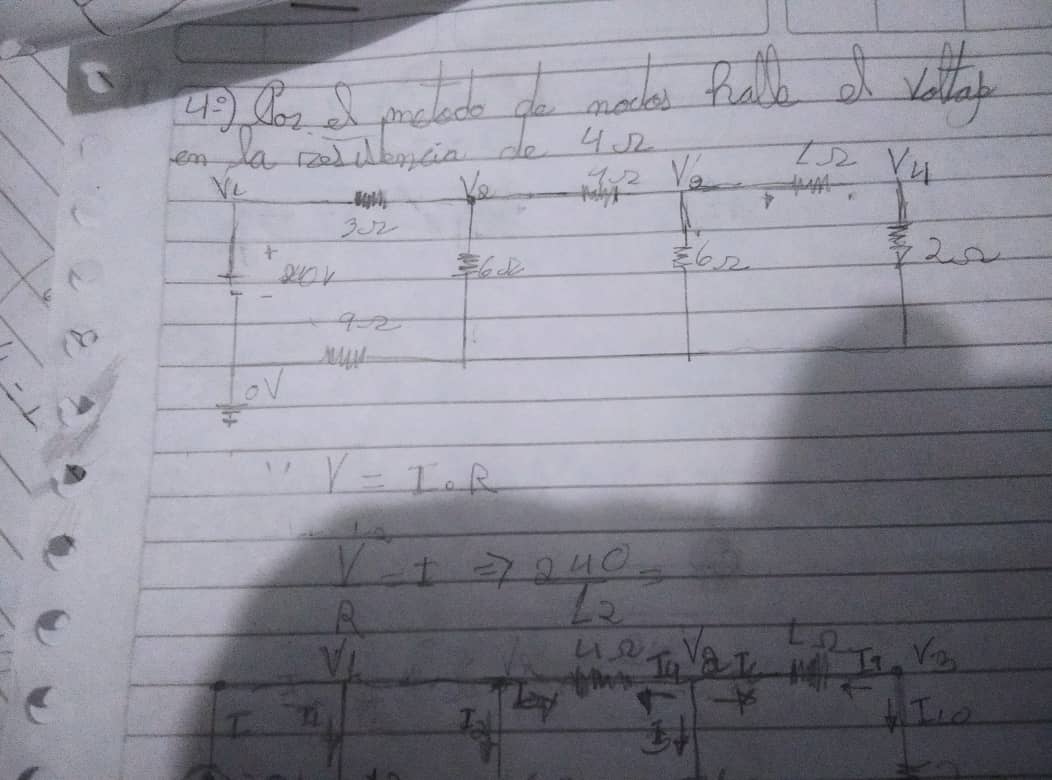 4º) Por el metodo de nodos halle el voltaje
en la resistencia de 4Ω
V1 3Ω V2 4Ω V3 1Ω V4
+ 240V - 6Ω 6Ω 2Ω
9Ω
0V
V = I.R
V/R = I => 240/12 =
V1 4Ω I4 V2 1Ω V3
I I2 I10